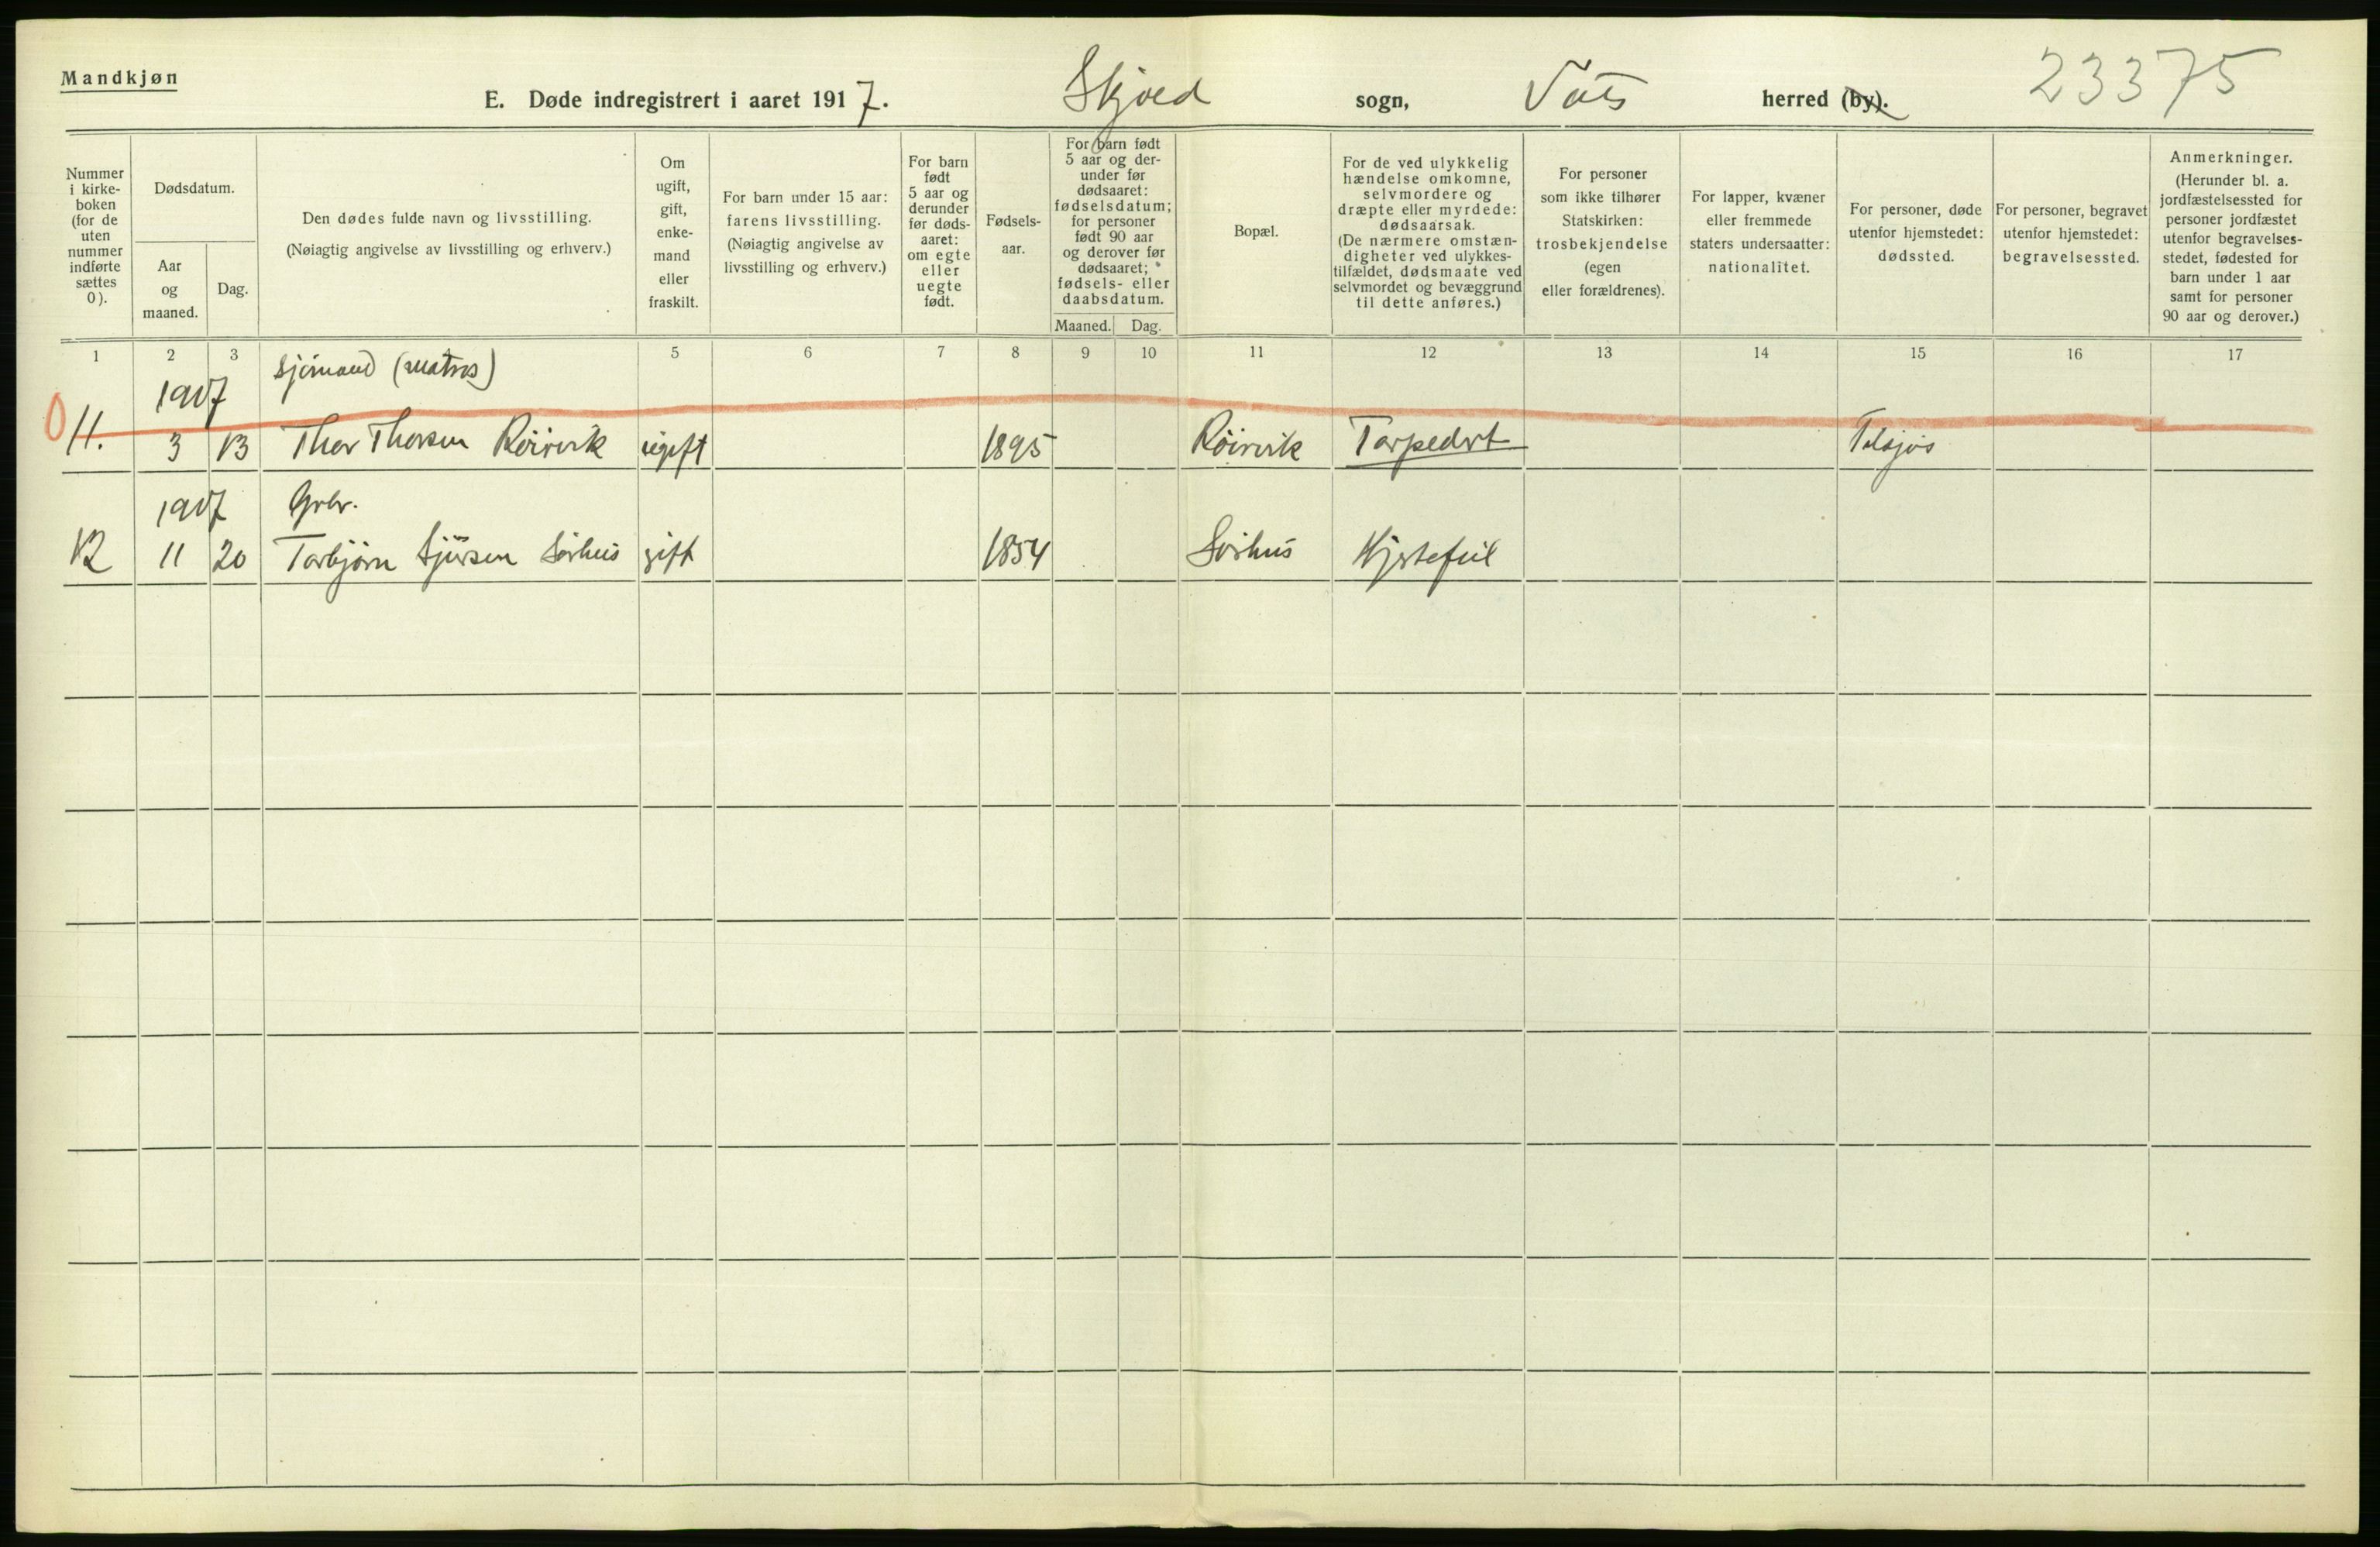 Mandkjøn
E. Døde indregistrert i aaret 1917. Skjold sogn, Vats herred (by). 23375
Nummer i kirke-boken (for de uten nummer indførte sættes 0).
Dødsdatum.
Aar og maaned.
Dag.
Den dødes fulde navn og livsstilling.
(Nøiagtig angivelse av livsstilling og erhverv.)
Om ugift, gift, enke-mand eller fraskilt.
For barn under 15 aar: farens livsstilling.
(Nøiagtig angivelse av livsstilling og erhverv.)
For barn født 5 aar og derunder før døds-aaret: om egte eller uegte født.
Fødsels-aar.
For barn født 5 aar og der-under før dødsaaret: fødselsdatum; for personer født 90 aar og derover før dødsaaret; fødsels- eller daabsdatum.
Maaned. Dag.
Bopæl.
For de ved ulykkelig hændelse omkomne, selvmordere og dræpte eller myrdede: dødsaarsak.
(De nærmere omstæn-digheter ved ulykkes-tilfældet, dødsmaate ved selvmordet og bevæggrund til dette anføres.)
For personer som ikke tilhører Statskirken: trosbekjendelse (egen eller forældrenes).
For lapper, kvæner eller fremmede staters undersaatter: nationalitet.
For personer, døde utenfor hjemstedet: dødssted.
For personer, begravet utenfor hjemstedet: begravelsessted.
Anmerkninger.
(Herunder bl. a. jordfæstelsessted for personer jordfæstet utenfor begravelses-stedet, fødested for barn under 1 aar samt for personer 90 aar og derover.)
1 2 3 5 6 7 8 9 10 11 12 13 14 15 16 17
1917 Sjømand (matros)
0 11. 3 13 Thor Thorsen Røirvik ugift 1895 Røirvik Torpedert
1917 Grbr.
12 11 20 Torbjørn Sjursen Sørhus gift 1854 Sørhus Hjertefeil